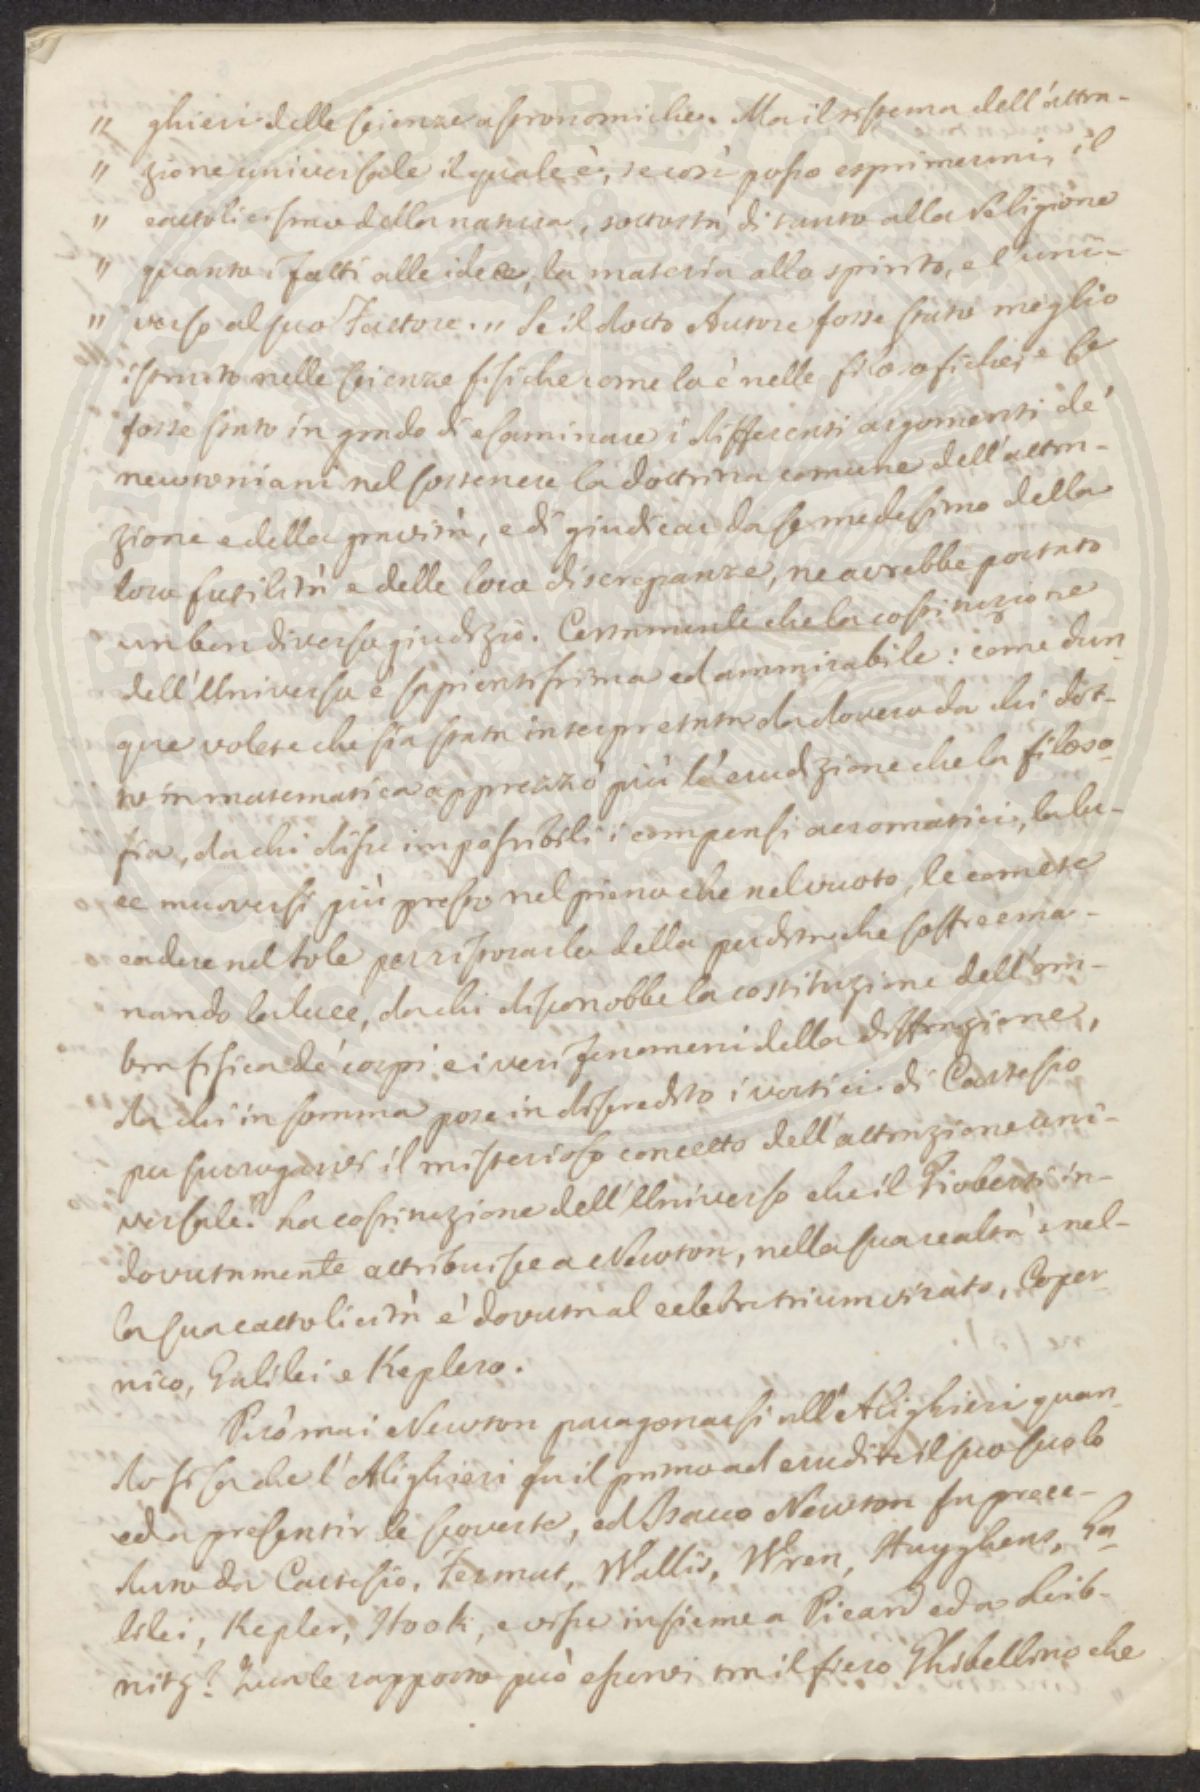 " ghieri delle scienze astronomiche. Ma il sistema dell'attra-
" zione universale il quale è, se così posso esprimermi, il
" cattolicismo della natura, sottostà di tanto alla Religione
" quanto i fatti alle idee, la materia allo spirito, e l'uni-
" verso al suo Fattore. " Se il dotto Autore fosse stato meglio
istruito nelle scienze fisiche come lo è nelle filosofiche, e se
fosse stato in grado di esaminare i differenti argomenti de'
newtoniani nel sostenere la dottrina comune dell'attra-
zione e della gravità, e di giudicar da se medesimo della
loro futilità e delle loro discrepanze, ne avrebbe portato
un ben diverso giudizio. Certamente che la costituzione
dell'Universo è sapientissima ed ammirabile: come dun-
que volete che sia stata interpretata da dovero da chi dot-
to in matematica apprezzò più l'erudizione che la filoso-
fia, da chi disse impossibili i compensi acromatici, la lu-
ce muoversi più presto nel pieno che nel vuoto, le comete
cadere nel Sole per ristorarlo della perdita che soffre ema-
nando la luce, da chi disconobbe la costituzione dell'om-
bra fisica de' corpi e i veri fenomeni della diffrazione,
da chi in somma pose in discredito i vortici di Cartesio
per surrogarvi il misterioso concetto dell'attrazione uni-
versale? La costituzione dell'Universo che il Gioberti in-
dovutamente attribuisce a Newton, nella sua realtà e nel-
la sua cattolicità è dovuta al celebre triumvirato, Coper-
nico, Galilei e Keplero.
Può mai Newton paragonarsi all'Alighieri quan-
do si sa che l'Alighieri fu il primo ad erudire il suo secolo
ed a presentir le scoverte, ed Isacco Newton fu prece-
duto da Cartesio, Fermat, Wallis, Wren, Huyghens, Ga-
lilei, Kepler, Hook, e visse insieme a Picard ed a Leib-
nitz? Quale rapporto può esservi tra il fiero Ghibellino che